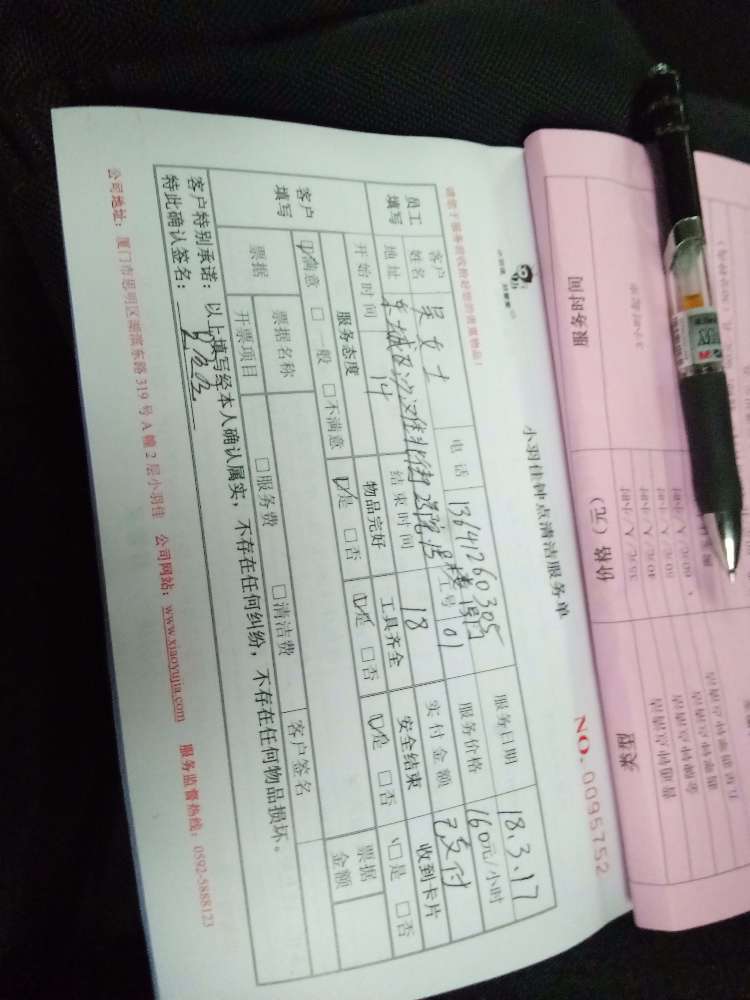 小羽佳钟点清洁服务单
NO. 0095752
请您于服务前收拾好您的贵重物品!
员工填写 客户姓名 吴女士 电话 13641260305 服务日期 18.3.17
地址 东城区沙滩北街 服务价格 160元/小时
开始时间 14 结束时间 18 工号 01 实付金额 已支付
客户填写 服务态度 物品完好 工具齐全 安全结束 收到卡片
☑满意 □一般 □不满意 ☑是 □否 ☑是 □否 ☑是 □否 ☑是 □否
票据 票据名称 □服务费 □清洁费 客户签名 票据金额
开票项目
客户特别承诺: 以上填写经本人确认属实, 不存在任何纠纷, 不存在任何物品损坏。
特此确认签名:
公司地址: 厦门市思明区湖滨东路 319 号 A 幢 2 层小羽佳 公司网站: www.xiaoyujia.com 服务监督热线: 0592-5888123
服务时间 价格(元) 类型
35元/人/小时